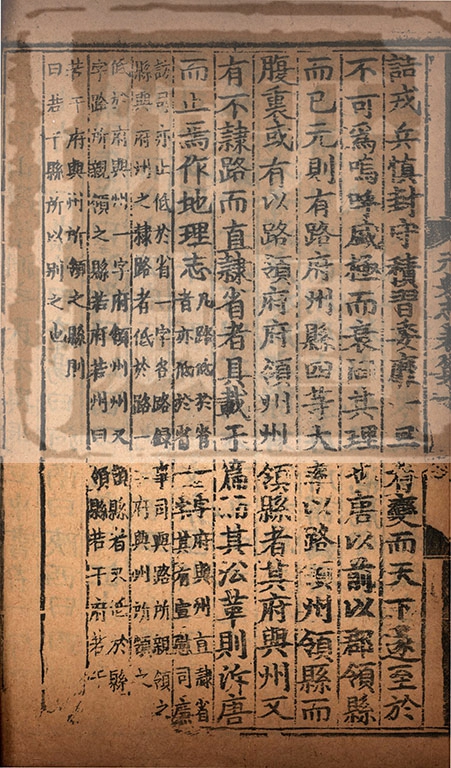 詰戎兵慎封守積習委靡一旦有變而天下遂至於
不可爲嗚呼盛極而衰固其理也唐以前以郡領縣
而已元則有路府州縣四等大率以路領州領縣而
腹裏或有以路領府府領州州領縣者其府與州又
有不隷路而直隷省者具載于篇而其沿革則泝唐
而止焉作地理志凡路低於省一字府與州直隷省
者亦低於省一字其有宣慰司廉
訪司亦止低於省一字各路録事司與路所親領之
縣與府州之隷路者低於路一字府與州所領之
低於府與州一字府領州州又領縣者又低於縣
字路所親領之縣若府若州曰領縣若干府若
若干府與州所領之縣則
曰若干縣所以别之也